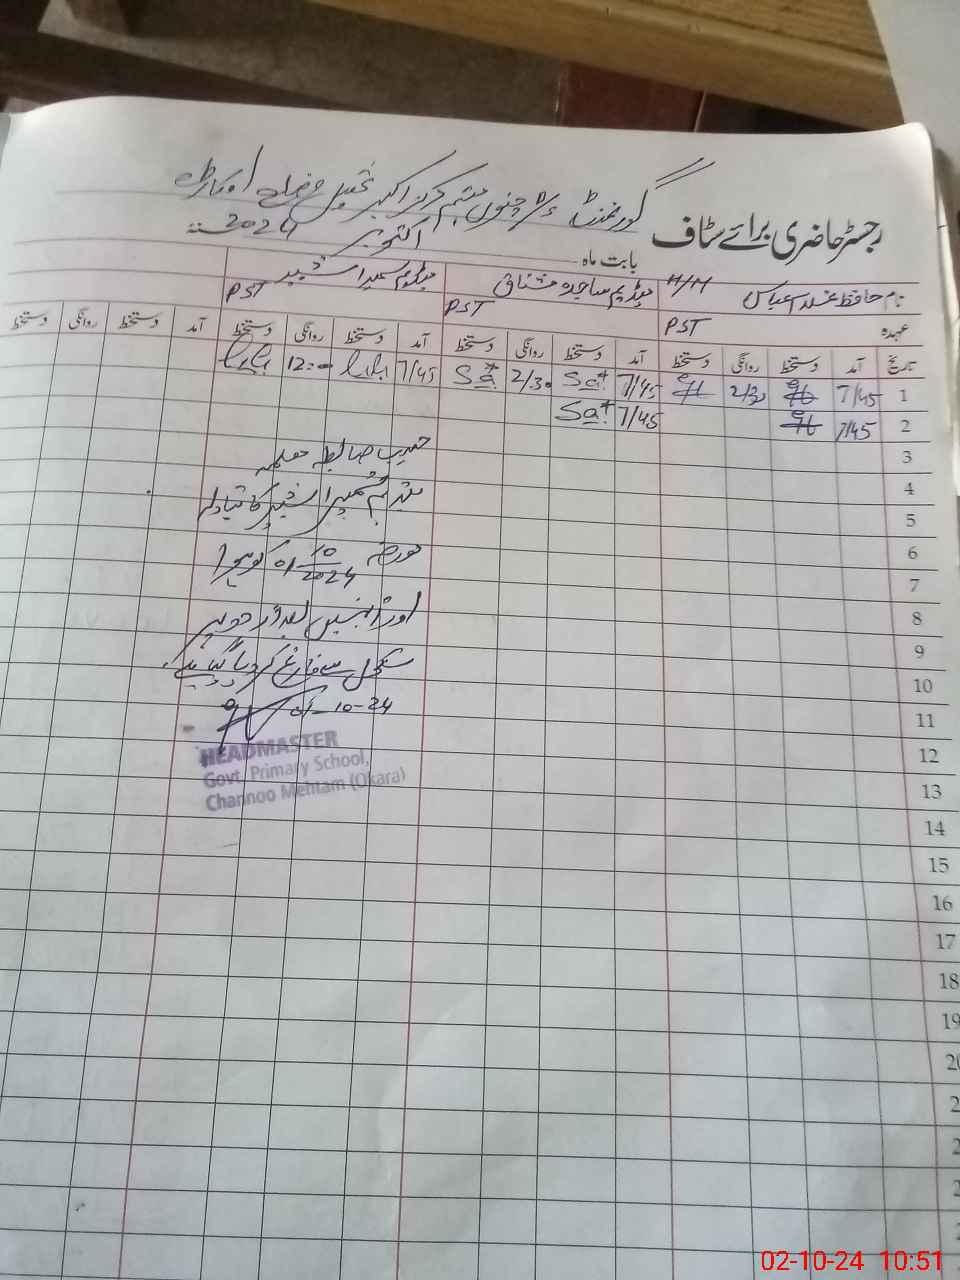 گورنمنٹ پرائمری چنوں مہتم مرکز اکبر تحصیل و ضلع اوکاڑہ
رجسٹر حاضری برائے سٹاف
بابت ماہ اکتوبر 2024 سنہ
نام حافظ غلام عباس H/M میڈیم ساجدہ مشتاق میڈیم سمیرا شبیر
عہدہ PST PST PST
تاریخ آمد دستخط روانگی دستخط آمد دستخط روانگی دستخط آمد دستخط روانگی دستخط آمد دستخط روانگی دستخط
1 7/45 2/30 7/45 Sat 2/30 Sat 7/45 12:00
2 7/45 7/45 Sat
3
4
5
6
7
8
9
10
11
12
13
14
15
16
17
18
19
حسب ضابطہ معلمہ
میڈیم سمیرا شبیر کا تبادلہ
مورخہ 01/10/2024 کو ہوا
اور انہیں بعد از دوپہر
سکول سے فارغ کر دیا گیا ہے۔
01-10-24
HEADMASTER
Govt. Primary School,
Channoo Mehtam (Okara)
02-10-24 10:51